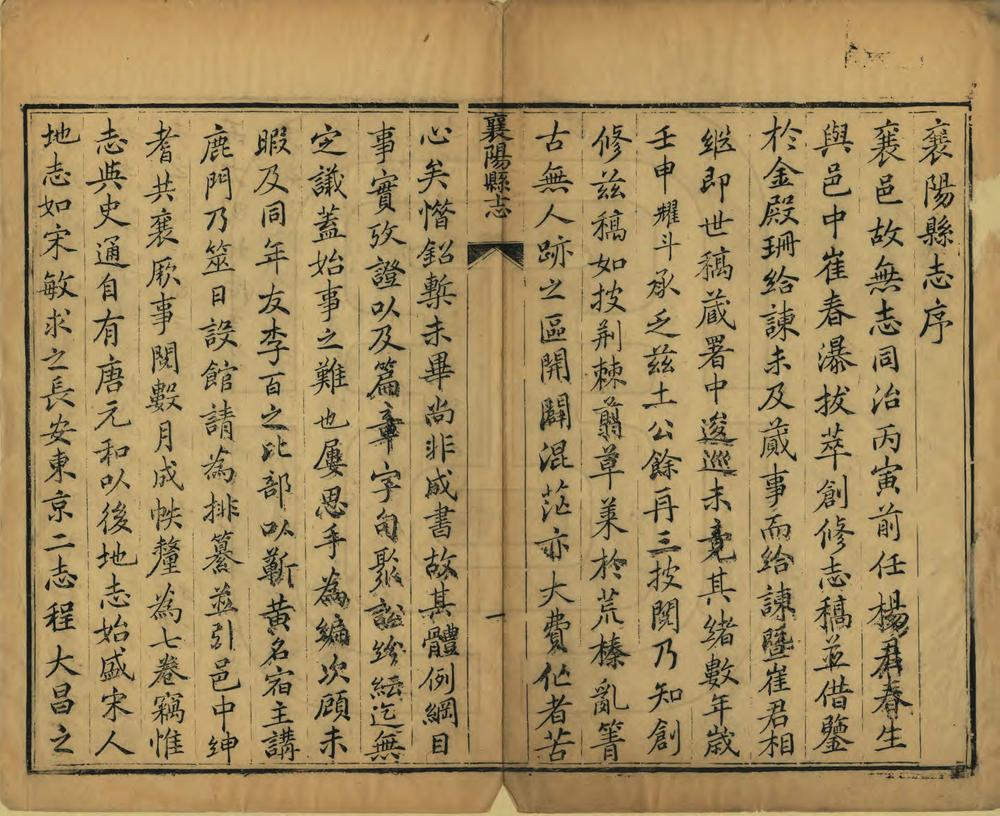 襄陽縣志序
襄邑故無志同治丙寅前任楊君春生
與邑中崔春瀑拔萃創修志稿並借鑒
於金殿珊給諫未及蕆事而給諫暨崔君相
继即世稿藏署中逡巡未竟其緒數年歲
壬申耀斗承乏茲土公餘再三披閱乃知創
修茲稿如披荆棘薙草萊於荒榛亂箐
古無人跡之區開闢混茫亦大費作者苦
襄陽縣志
一
心矣惜鉛槧未畢尚非成書故其體例綱目
事實攷證以及篇章字句聚訟紛紜迄無
定議蓋始事之難也屢思手為編次顧未
暇及同年友李百之比部以蘄黃名宿主講
鹿門乃筮日設館請為排纂並引邑中紳
耆共襄厥事閱數月成帙釐為七卷竊惟
志與史通自有唐元和以後地志始盛宋人
地志如宋敏求之長安東京二志程大昌之